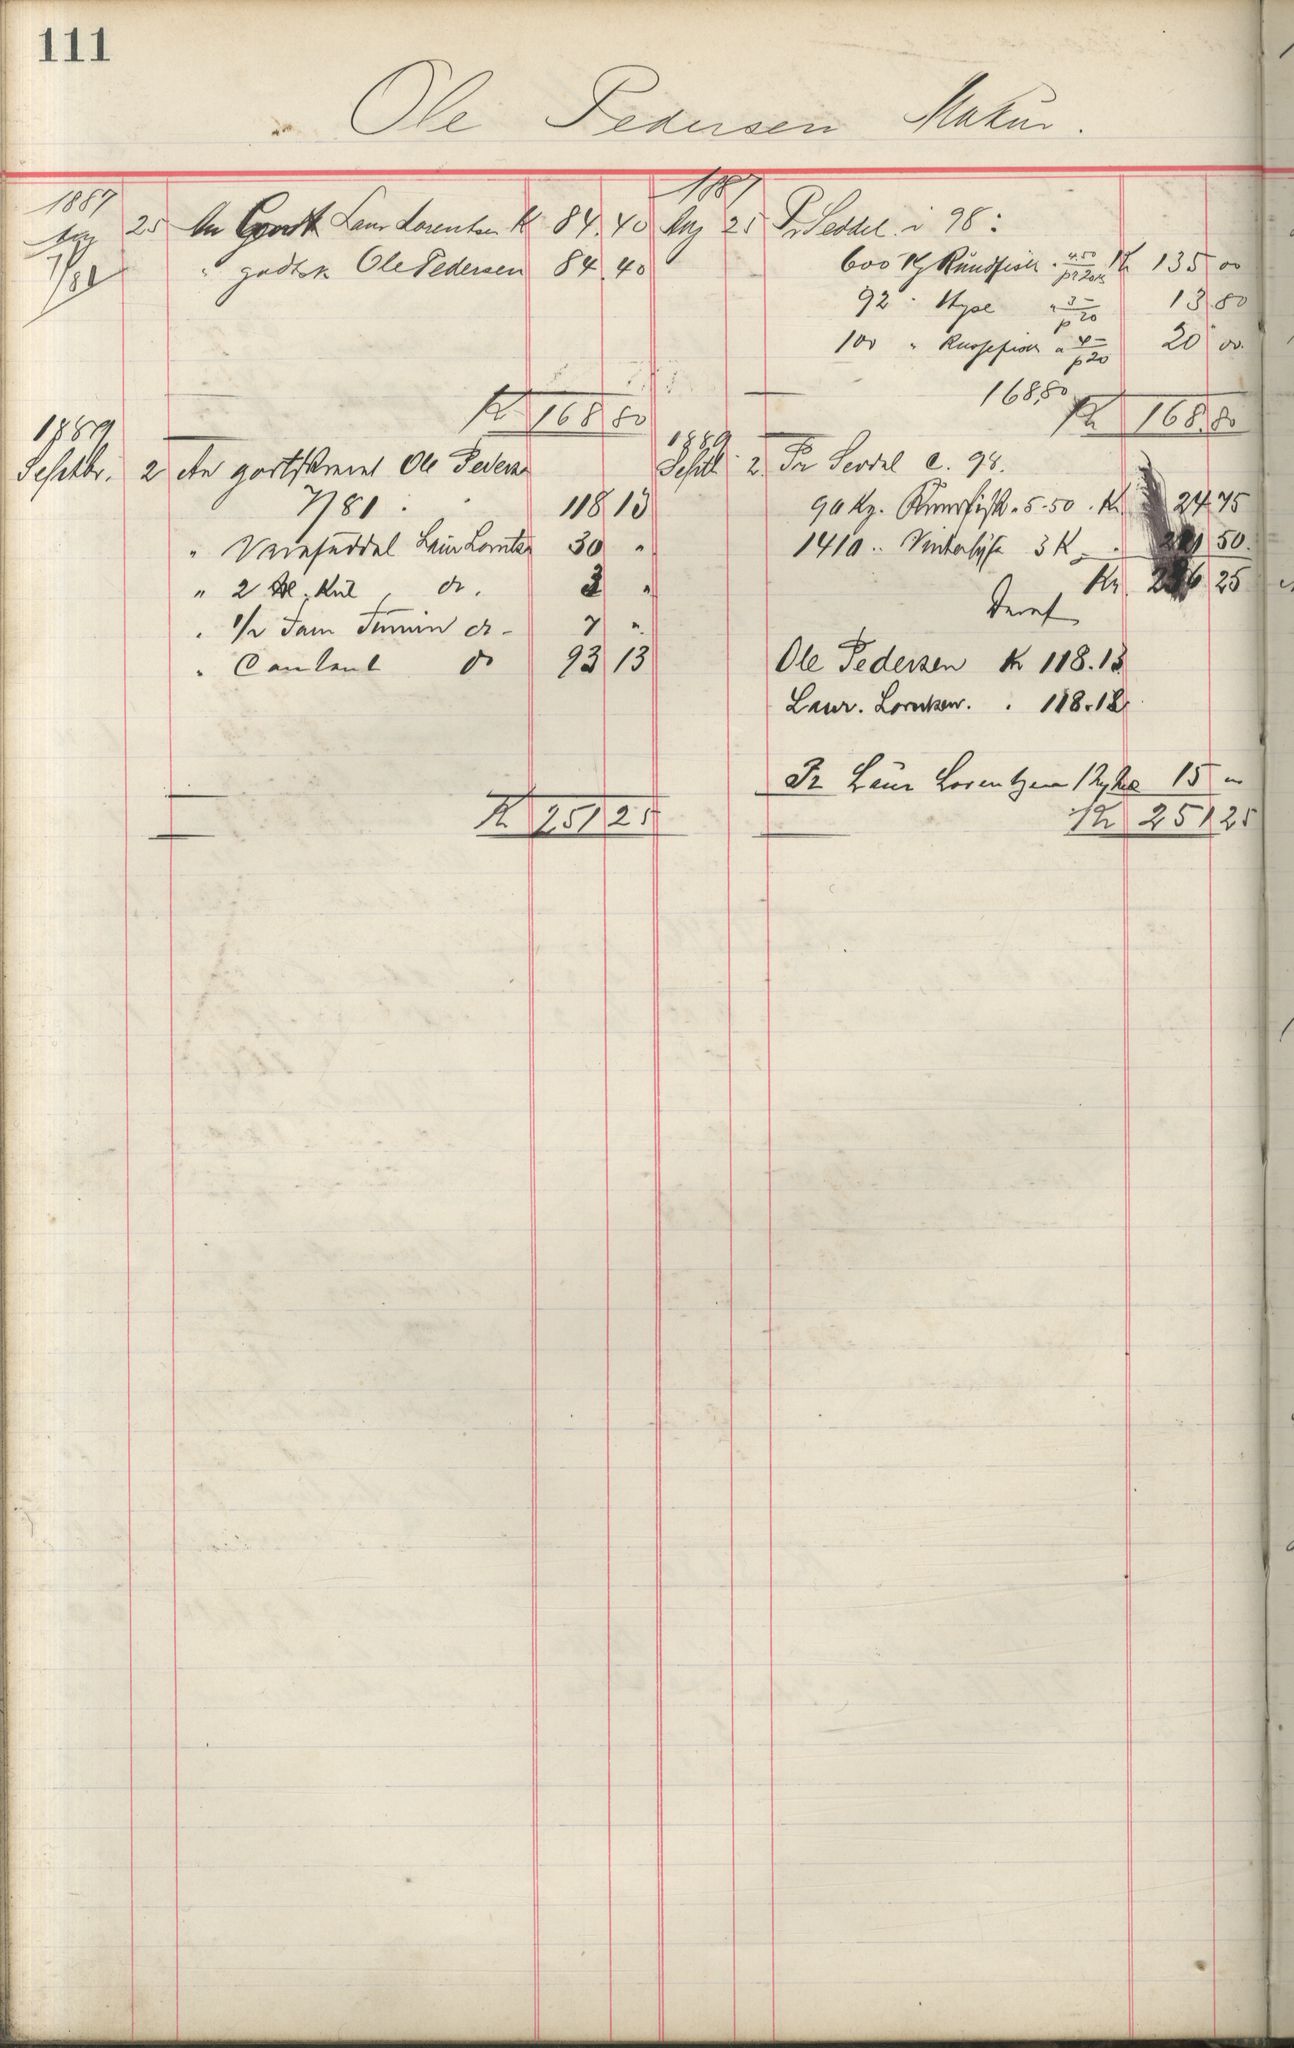 111
Ole Pedersen Makur.
1887
Aug 25 An Godtsk Laur Lorentsen K 84.40
7/81
" godtsk Ole Pedersen 84.40
K 168 80
1889
Septbr. 2 An godtskrevet Ole Pedersen
7/81 . 118 13
" Vareseddel Laur Lorntzn 30 "
" 2 Kul do. 3 "
" 1/2 Favn do - 7 "
" Contant do 93 13
K 251 25
1887
Aug 25 Pr Seddel i 98:
600 Kg Rundfisk . 4.50 pr 20 K 135 00
92 " Hyse " 3- p 20 13 80
100 " a 4- p 20 20 00
168,80
Kr 168.80
1889
Septb 2. Pr Seddel C. 98.
90 Kg. Rundfisk a 5-50 . Kr. 24 75
1410 " 3 K 211 50.
Kr. 236 25
Deraf
Ole Pedersen Kr 118.13
Laur. Lorntzen. . 118.12
Pr Laur Lorentzen 15 "
Kr 251 25